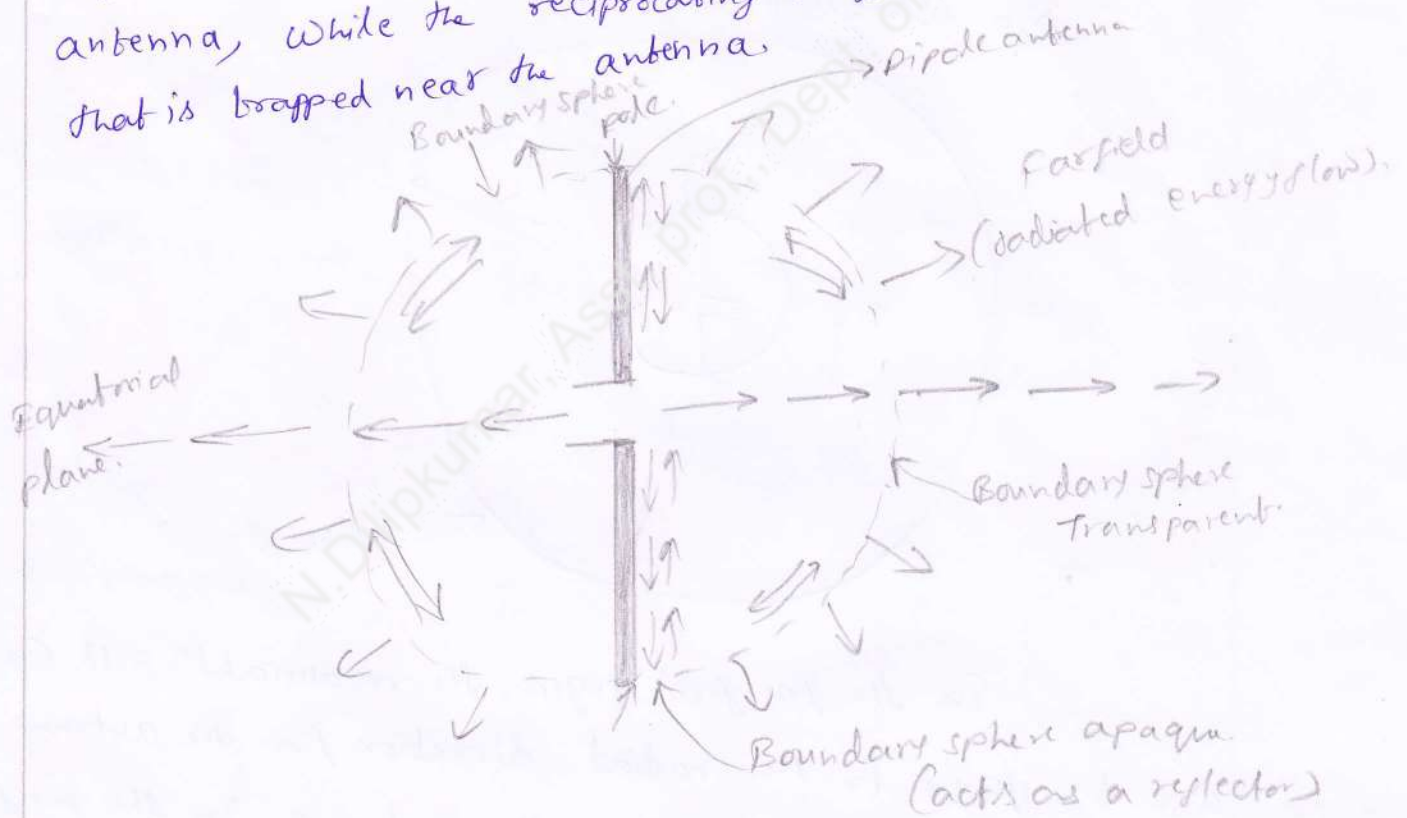 antenna, while the reciprocating
that is trapped near the antenna.
Boundary sphere
pole.
Dipole antenna
Farfield
(radiated energy flow).
Equatorial
plane.
Boundary sphere
Transparent.
Boundary sphere apaqua.
(acts as a reflector)
N. Dipkumar, Asst. prof., Dept. of